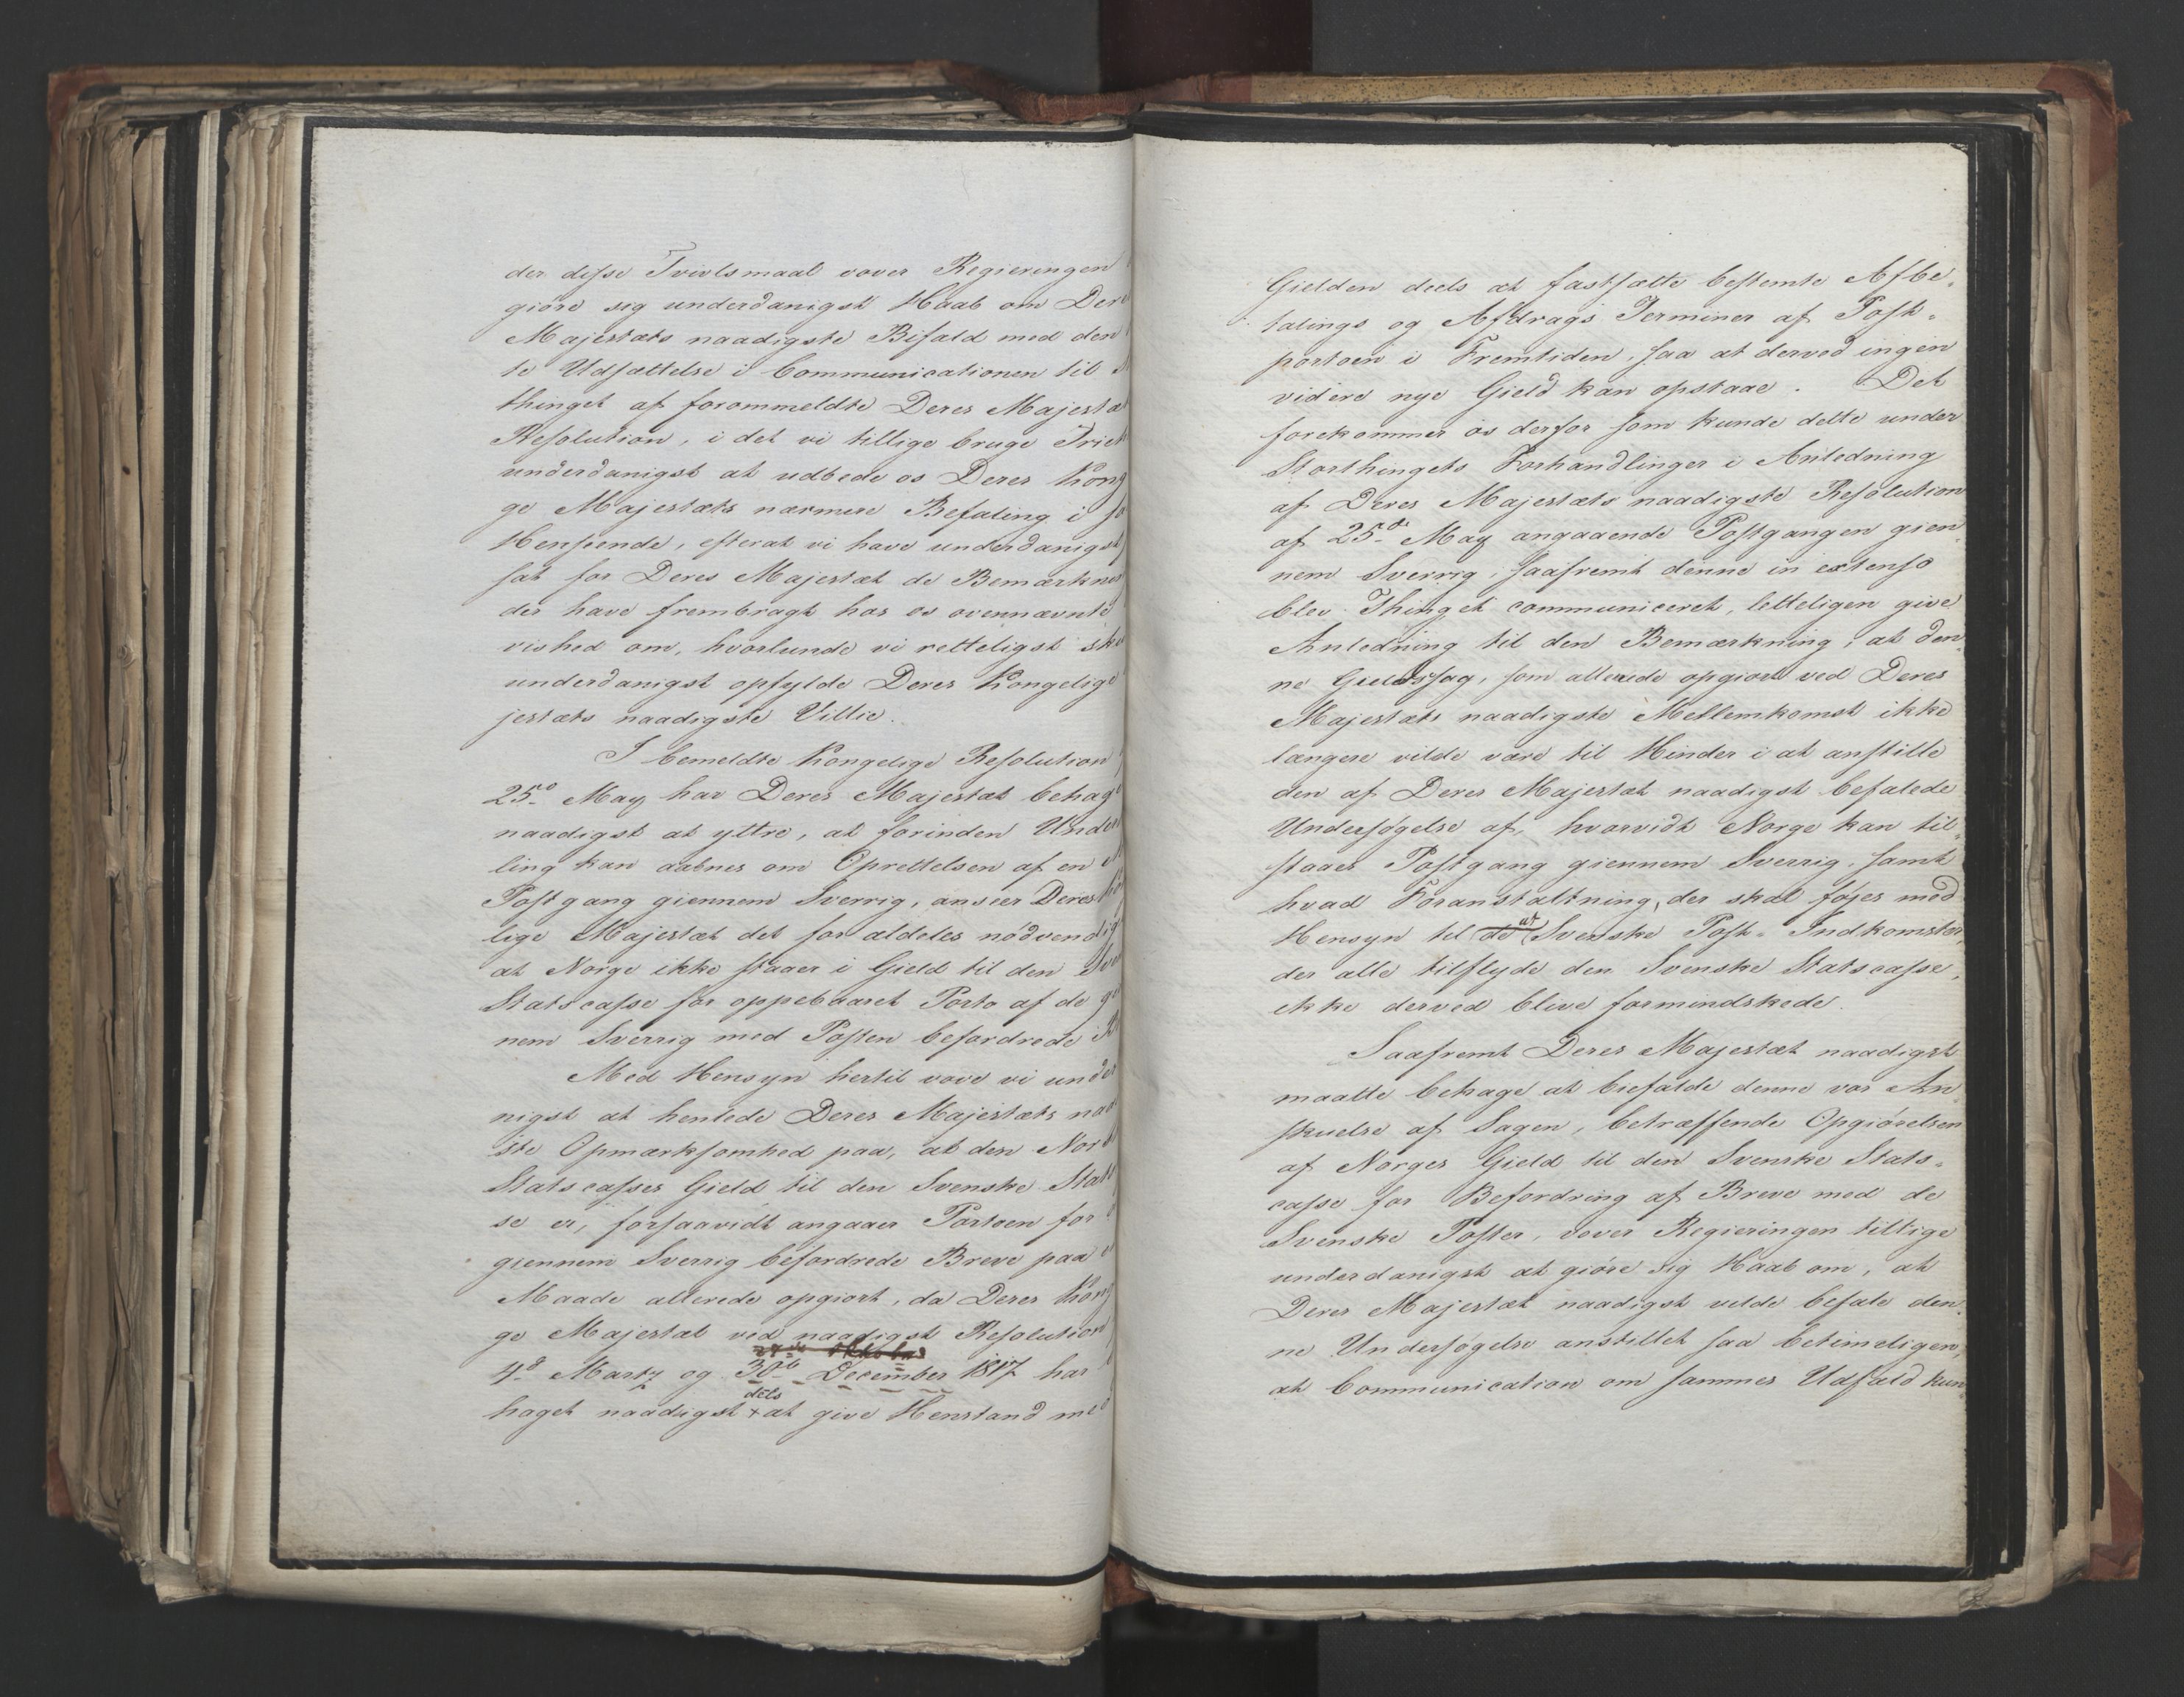 der disse Tvivlsmaal vover Regieringen
giöre sig underdanigst Haab om Dere
Majestæts naadigste Bifald med den
te Udsættelse i Communicationen til
thinget af forommeldte Deres Majestæ
Resolution, i det vi tillige bruge Frieh
underdanigst at udbede os Deres Kong
ge Majestæts nærmere Befaling i
Henseende, efterat vi have underdanigst
sat for Deres Majestæt de Bemærkni
der have frembragt hos os ovennævnte
vished om, hvorlunde vi retteligst sk
underdanigst opfylde Deres Kongelige
jestæts naadigste Villie.
I bemeldte Kongelige Resolution
25de May har Deres Majestæt behag
naadigst at yttre, at forinden Under
ling kan aabnes om Oprettelsen af en
Postgang giennem Sverrig, anseer Deres Kon
lige Majestæt det for aldeles nödvendig
at Norge ikke staaer i Gield til den Sv
Statscasse for oppebaaret Porto af de gi
nem Sverrig med Posten befordrede
Med Hensyn hertil vove vi under
nigst at henlede Deres Majestæts naa
ste Opmærksomhed paa, at den Nor
Statscasses Gield til den Svenske Stats
se er, forsaavidt angaaer Portoen for
giennem Sverrig befordrede Breve paa
Maade allerede opgiort, da Deres Kong
ge Majestæt ved naadigst Resolution
4de Martz og 30te December 1817 har
deels
haget naadigst + at give Henstand me
Gielden deels at fastsætte bestemte Afbe-
talings og Afdrags Terminer af Post-
portoen i Fremtiden, saa at derved ingen
videre nye Gield kan opstaae. Det
forekommer os derfor som kunde dette under
Storthingets Forhandlinger i Anledning
af Deres Majestæts naadigste Resolution
af 25de May angaaende Postgangen gien-
nem Sverrig, saafremt denne in extenso
blev Thinget communiceret, letteligen give
Anledning til den Bemærkning, at den-
ne Gieldssag, som allerede opgiort ved Deres
Majestæts naadigste Mellemkomst ikke
længere vilde være til Hinder i at anstille
den af Deres Majestæt naadigst befalede
Undersögelse af, hvorvidt Norge kan til-
staaes Postgang giennem Sverrig, samt
hvad Foranstaltning, der skal föjes med
at
Hensyn til de Svenske Post-Indkomster,
der alle tilflyde den Svenske Statscasse,
ikke derved blive formindskede.
Saafremt Deres Majestæt naadigst
maatte behage at biefalde denne vor An-
skuelse af Sagen, betræffende Opgiörelsen
af Norges Gield til den Svenske Stats-
casse for Befordring af Breve med de
Svenske Poster, vover Regieringen tillige
underdanigst at giöre sig Haab om, at
Deres Majestæt naadigst vilde befale den-
ne Undersögelse anstillet saa betimeligen,
at Communication om sammes Udfald kun-